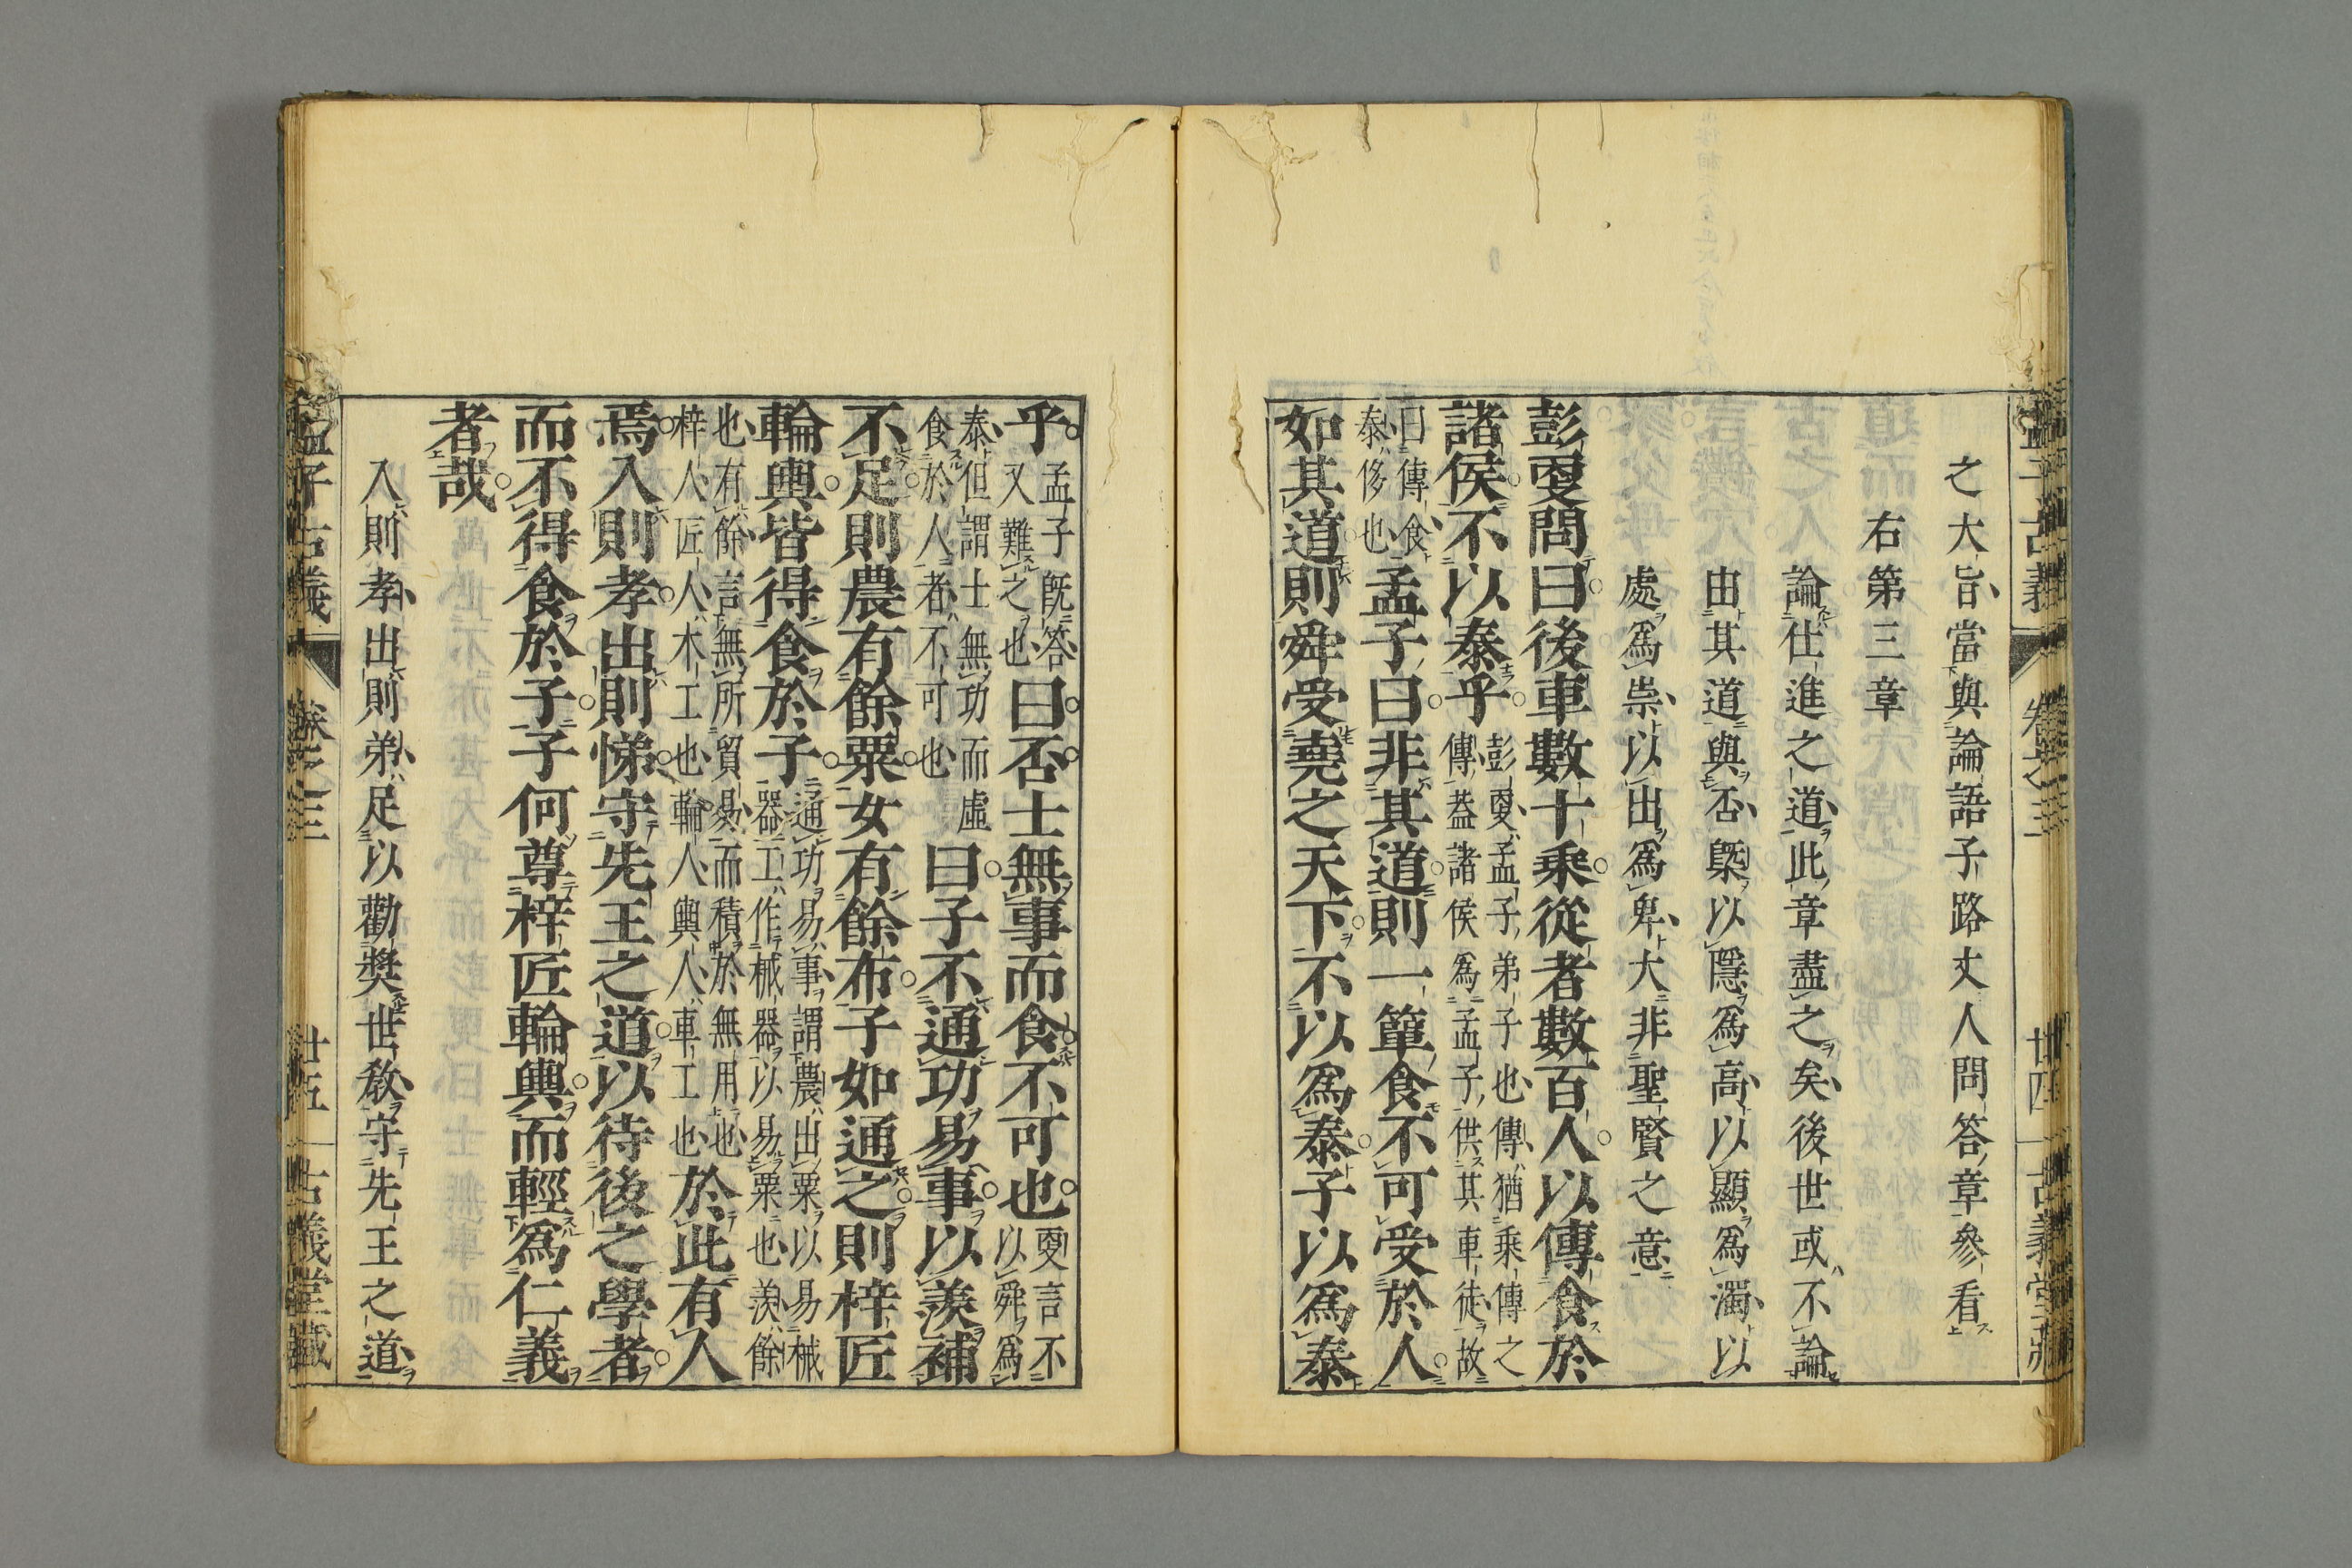 之大旨當與論語子路丈人問答章參看
右第三章
論仕進之道此章盡之矣後世或不論
由其道與否槩以隱爲高以顯爲濁以
處爲崇以出爲卑大非聖賢之意
彭更問曰後車數十乘從者數百人以傳食於
諸侯不以泰乎
彭更孟子弟子也傳猶乘傳之
傳蓋諸侯爲孟子供其車徒故
曰傳食
泰侈也
孟子曰非其道則一簞食不可受於人
如其道則舜受堯之天下不以爲泰子以爲泰
孟子古義
卷之三
廿四
古義堂藏
乎
孟子旣答
又難之也
曰否士無事而食不可也
更言不
以舜爲
泰但謂士無功而虛
食於人者不可也
曰子不通功易事以羨補
不足則農有餘粟女有餘布子如通之則梓匠
輪輿皆得食於子
通功易事謂農出粟以易械
器工作械器以易粟也羨餘
也有餘言無所貿易而積於無用也
梓人匠人木工也輪人輿人車工也
於此有人
焉入則孝出則悌守先王之道以待後之學者
而不得食於子子何尊梓匠輪輿而輕爲仁義
者哉
入則孝出則弟足以勸奬世敎守先王之道
孟子古義
卷之三
廿五
古義堂藏